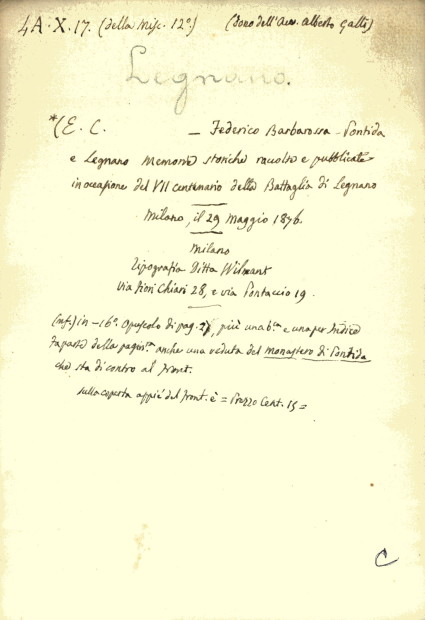 4A.X.17. (della Misc. 12°.) (dono dell'Avv. Alberto Galli)
Legnano.
*(E. C. — Federico Barbarossa - Pontida
e Legnano Memorie storiche raccolte e pubblicate
in occasione del VII centenario della Battaglia di Legnano
Milano, il 29 Maggio 1876.
Milano
Tipografia Ditta Wilmant
Via Fiori Chiari 28, e via Pontaccio 19.
in-16°. Opuscolo di pag. più una e una per Indice
fa parte della anche una veduta del monastero di Pontida
che sta di contro al front.
sulla coperta appiè del front. è = Prezzo Cent. 15 =
C